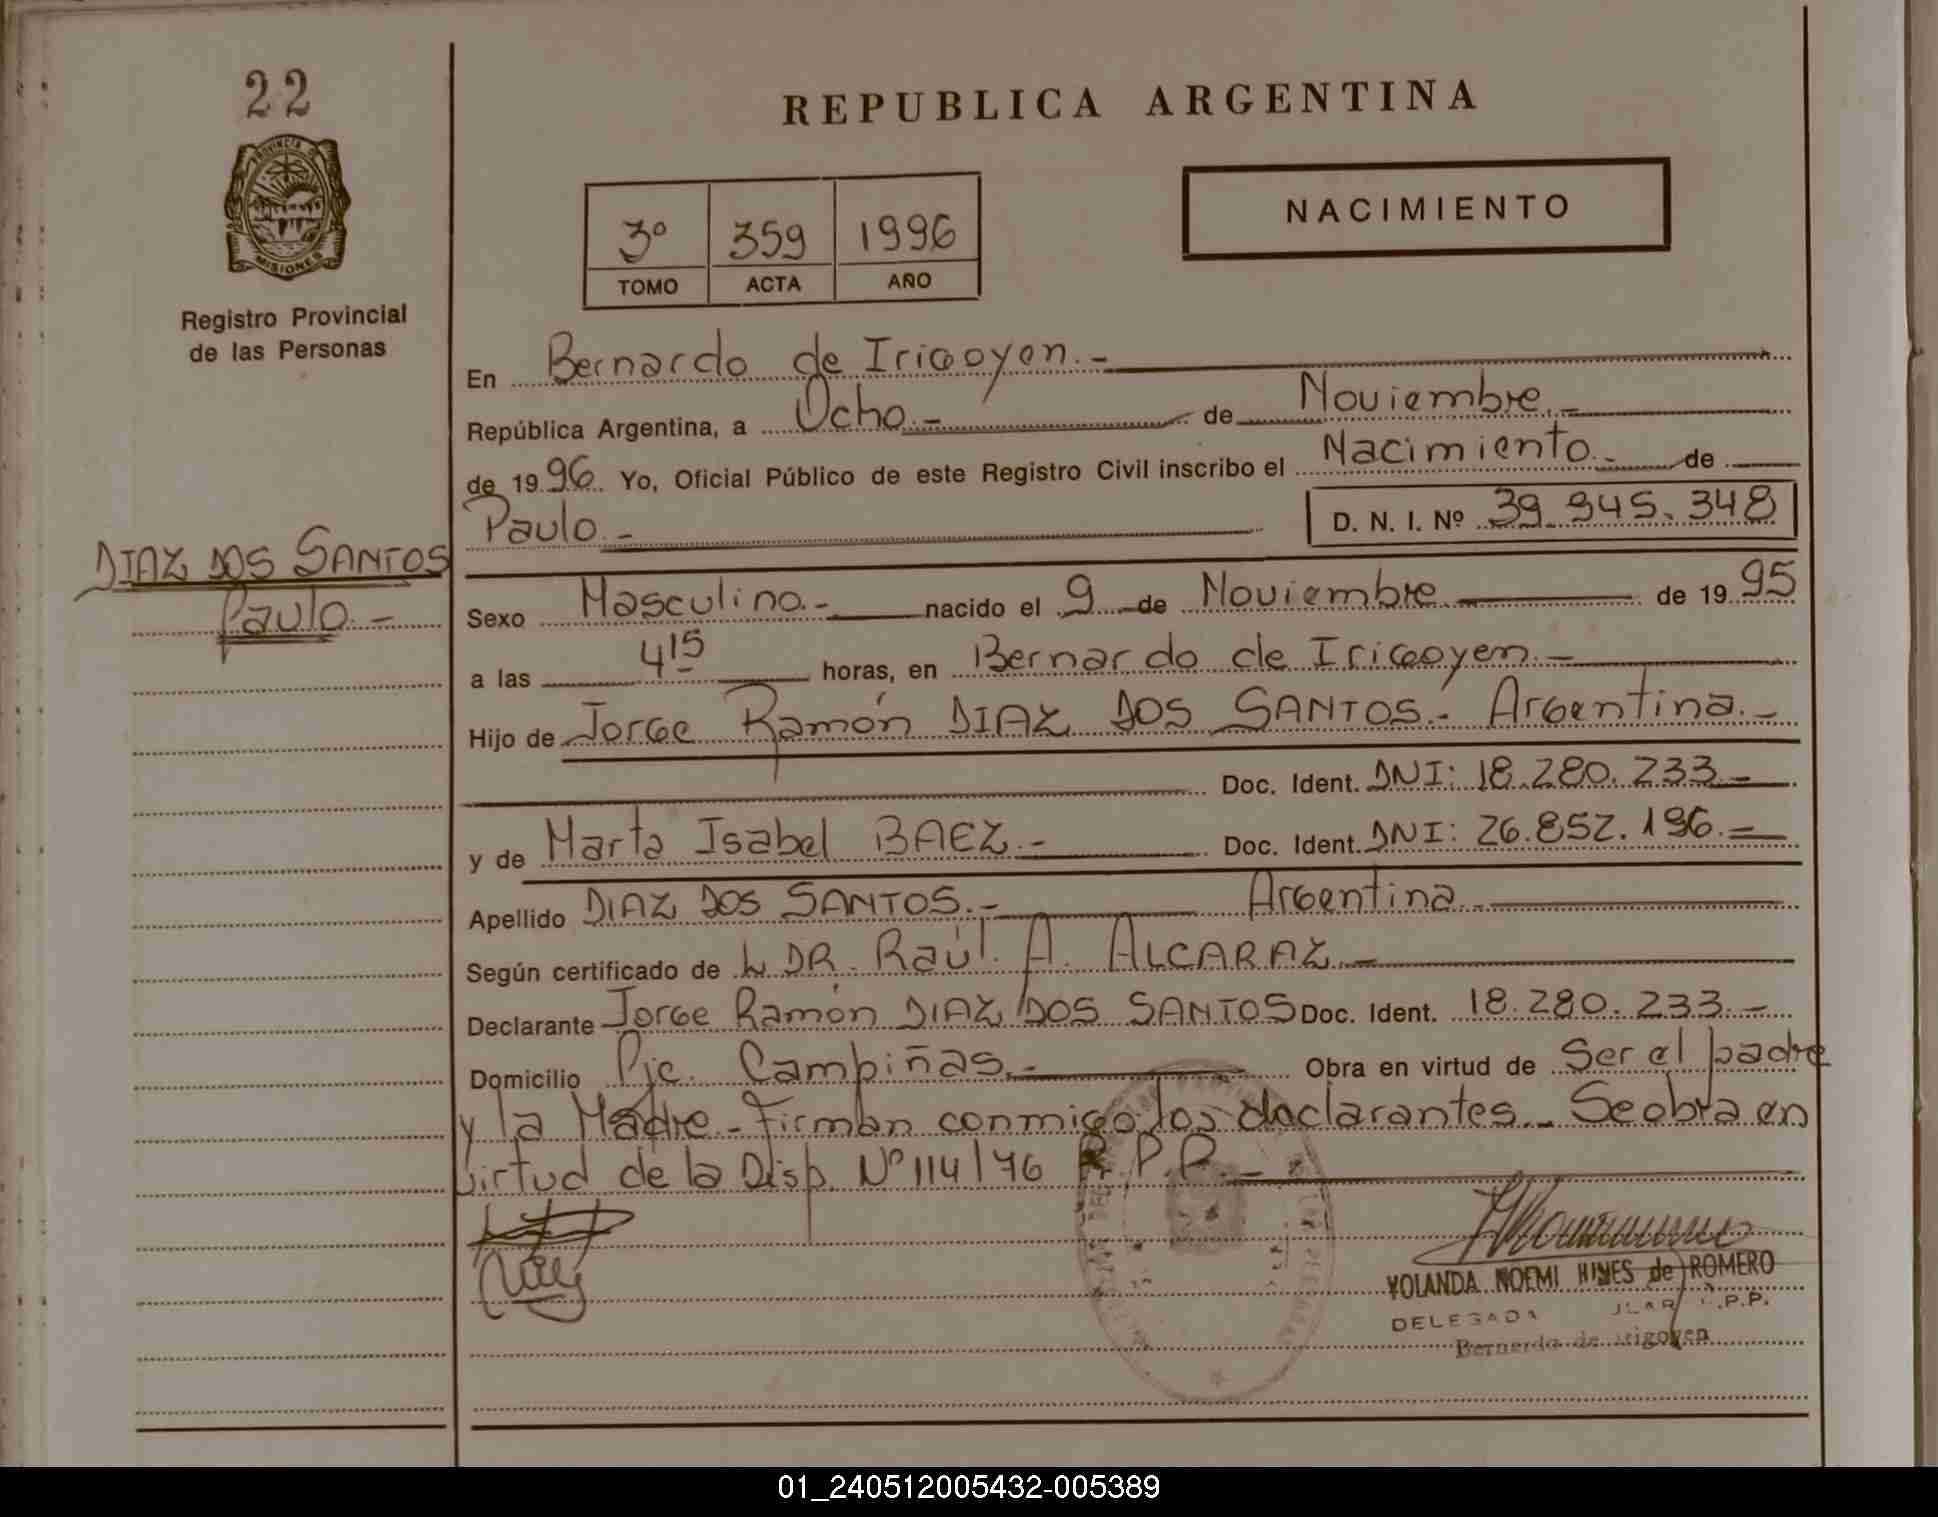 22
PROVINCIA DE
MISIONES
Registro Provincial
de las Personas
DIAZ DOS SANTOS
Paulo.-
REPUBLICA ARGENTINA
3º 359 1996
TOMO ACTA AÑO
NACIMIENTO
En Bernardo de Irigoyen.-
República Argentina, a Ocho.- de Noviembre.-
de 1996. Yo, Oficial Público de este Registro Civil inscribo el Nacimiento.- de
Paulo.- D. N. I. Nº 39.945.348
Sexo Masculino.- nacido el 9 de Noviembre de 1995
a las 4 15 horas, en Bernardo de Irigoyen.-
Hijo de Jorge Ramón DIAZ DOS SANTOS.- Argentina.-
Doc. Ident. DNI: 18.280.233.-
y de Marta Isabel BAEZ.- Doc. Ident. DNI: 26.852.196.-
Apellido DIAZ DOS SANTOS.- Argentina.
Según certificado de L DR. Raúl. A. ALCARAZ.-
Declarante Jorge Ramón DIAZ DOS SANTOS Doc. Ident. 18.280.233.-
Domicilio Pje. Campiñas.- Obra en virtud de Ser el padre
y la Madre.- Firman conmigo los declarantes.- Se obra en
virtud de la Disp. Nº 114/76 R.P.P.-
YOLANDA NOEMI HINES de ROMERO
DELEGADA R.P.P.
Bernardo de Irigoyen
01_240512005432-005389